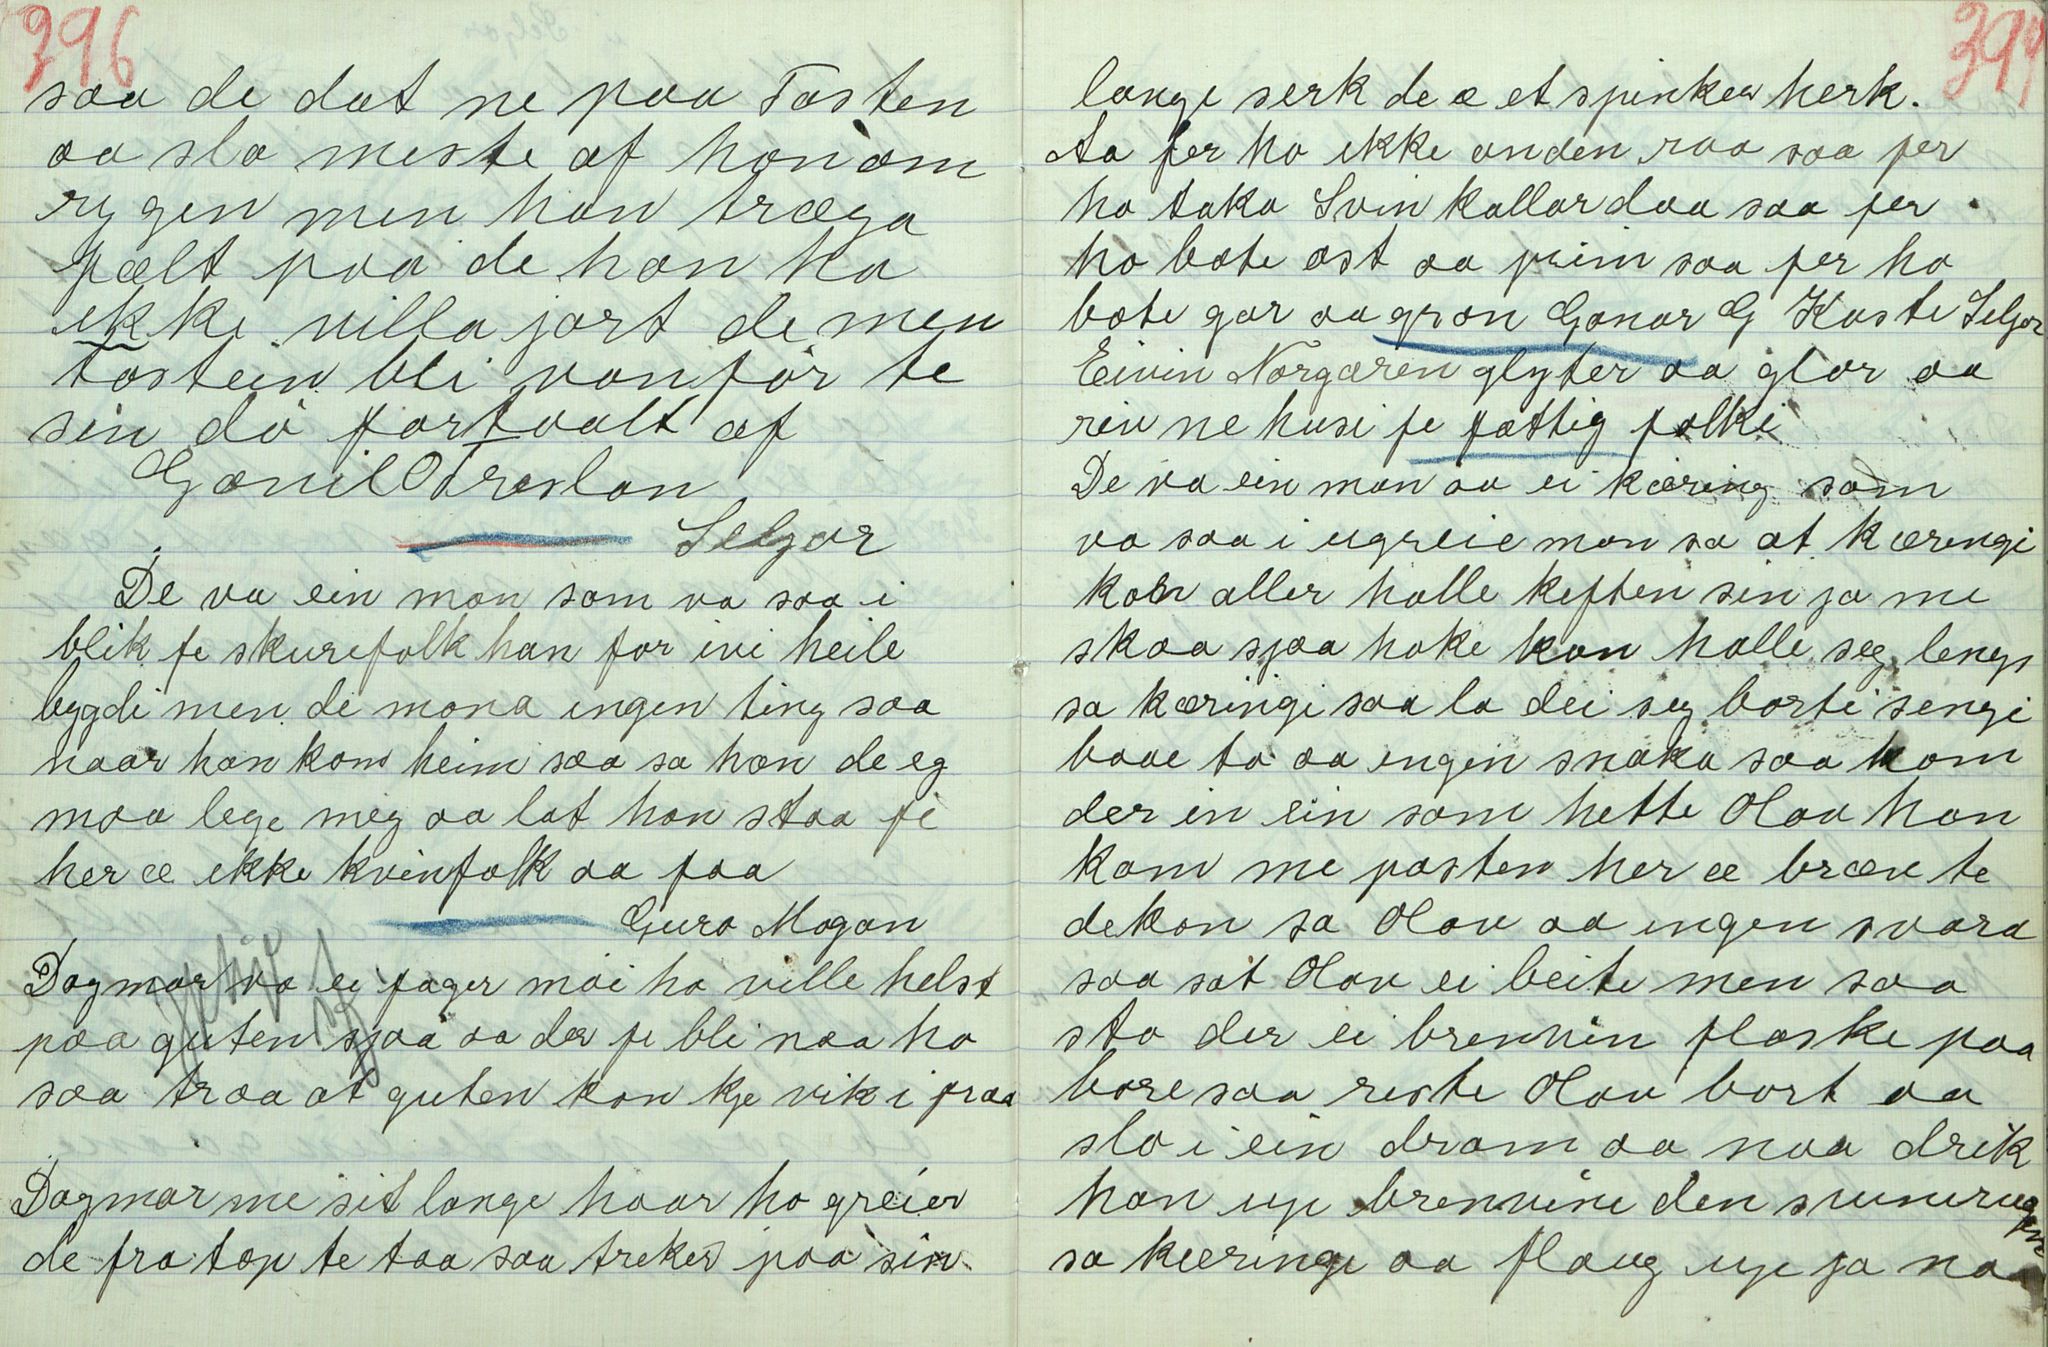 396
saa de dat ne paa Tosten
aa slo meste af honom
rygen men han træga
fælt paa de han ha
ikke villa jort de men
tostein bli vanför te
sin dö fortvalt af
Gonil O Treslan
Selgor
De va ein mon som va saa i
blik fe skurefolk han for ivi heile
bygdi men de mona ingen ting saa
naar han kom heim saa sa han de eg
maa lege meg aa lat han staa fe
her æ ikke kvinfolk aa faa
Guro Mogan
Dagmar va ei fager möi ho ville helst
paa guten sjaa aa der fe bli naa ho
saa traa at guten kon kje vik i fraa
Dagmar me sit lange haar ho greier
de fra top te taa saa treker paa sin
397
lange serk de æ et spinkes herk.
Aa fer ho ikke anden raa saa fer
ho taka Svin kallar daa saa fer
ho bote ost aa prim saa fer ho
bote gar aa gron Gonar G Kaste Selgor
Eivin Norgaren glyter aa glor aa
riv ne husi fe fattig folki
De va ein mon aa ei kæring som
va saa i ugreie mon sa at kæringi
kon aller halle keften sin ja me
skaa sjaa hoke kan halle seg lengs
sa kæringi saa la dei seg borti sengi
baae to aa engin snaka saa kom
der in ein som hette Olav han
kom me posten her æ bræv te
dekon sa Olav aa ingen svara
saa sat Olav ei beite men saa
sto der ei brennvin flaske paa
bore saa reiste Olav bort aa
slo i ein dram aa naa drik
han up brennvine den
sa kæringi aa flaug up ja na